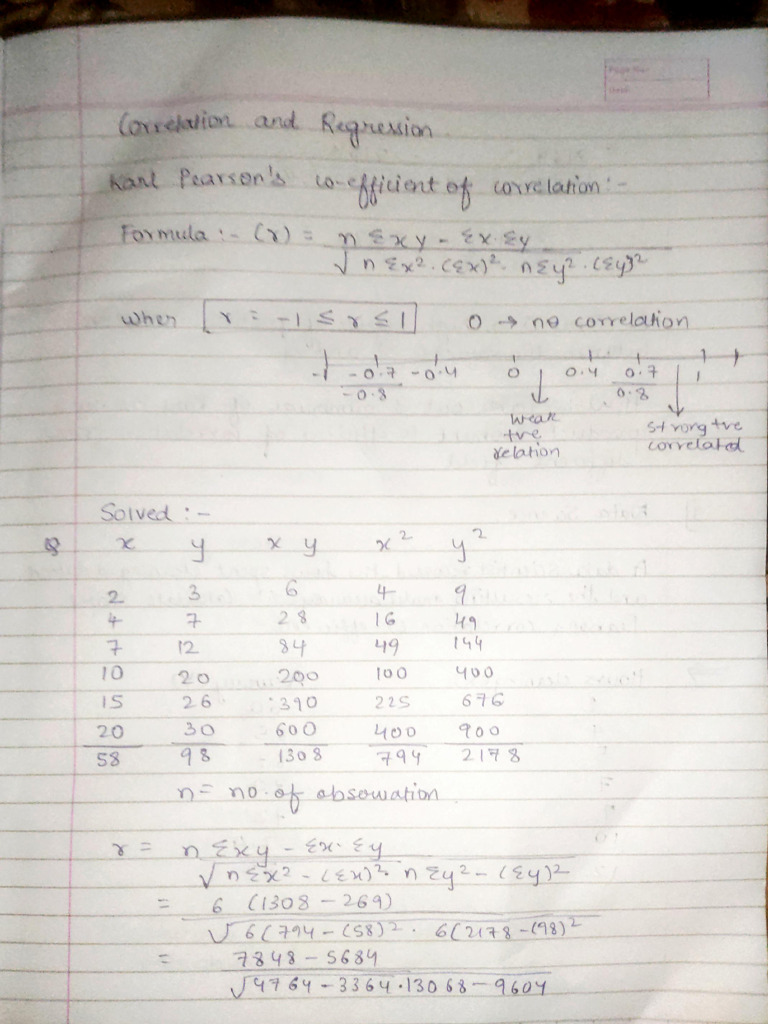 Page No.
Date
Correlation and Regression
Karl Pearson's co-efficient of correlation :-
Formula :- (r) = n Σxy - Σx·Σy
√ n Σx²·(Σx)²· nΣy²·(Σy)²
when [r = -1 ≤ r ≤ 1] 0 → no correlation
-1 -0.7 -0.4 0 0.4 0.7 1
-0.8 0.8
weak +ve relation
strong +ve correlated
Solved :-
Q x y x y x² y²
2 3 6 4 9
4 7 28 16 49
7 12 84 49 144
10 20 200 100 400
15 26 390 225 676
20 30 600 400 900
58 98 1308 794 2178
n = no. of obsowation
r = n Σxy - Σx· Σy
√ n Σx² - (Σx)²· n Σy² - (Σy)²
= 6 (1308 - 269)
√ 6(794 - (58)² · 6(2178 - (98)²
= 7848 - 5684
√4764 - 3364 · 13068 - 9604